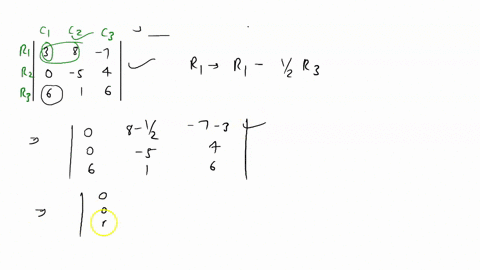 C1 C2 C3
R1 | 3 8 -7 |
R2 | 0 -5 4 |
R3 | 6 1 6 |
R1 → R1 - 1/2 R3
⇒ | 0 8-1/2 -7-3 |
| 0 -5 4 |
| 6 1 6 |
⇒ | 0
| 0